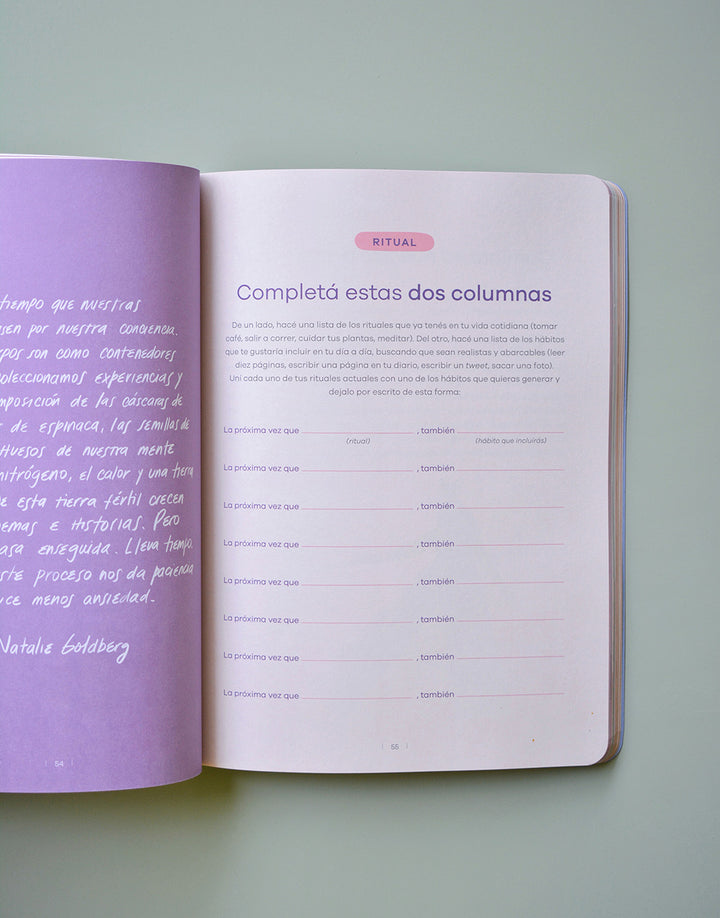 tiempo que nuestras
por nuestra conciencia.
son como contenedores
coleccionamos experiencias y
de las cáscaras de
de espinaca, las semillas de
huesos de nuestra mente
nitrógeno, el calor y una tierra
esta tierra fértil crecen
e historias. Pero
enseguida. Lleva tiempo.
proceso nos da paciencia
menos ansiedad.
Natalie Goldberg
| 54 |
RITUAL
Completá estas dos columnas
De un lado, hacé una lista de los rituales que ya tenés en tu vida cotidiana (tomar
café, salir a correr, cuidar tus plantas, meditar). Del otro, hacé una lista de los hábitos
que te gustaría incluir en tu día a día, buscando que sean realistas y abarcables (leer
diez páginas, escribir una página en tu diario, escribir un tweet, sacar una foto).
Uní cada uno de tus rituales actuales con uno de los hábitos que quieras generar y
dejalo por escrito de esta forma:
La próxima vez que , también
(ritual) (hábito que incluirás)
La próxima vez que , también
La próxima vez que , también
La próxima vez que , también
La próxima vez que , también
La próxima vez que , también
La próxima vez que , también
La próxima vez que , también
| 55 |